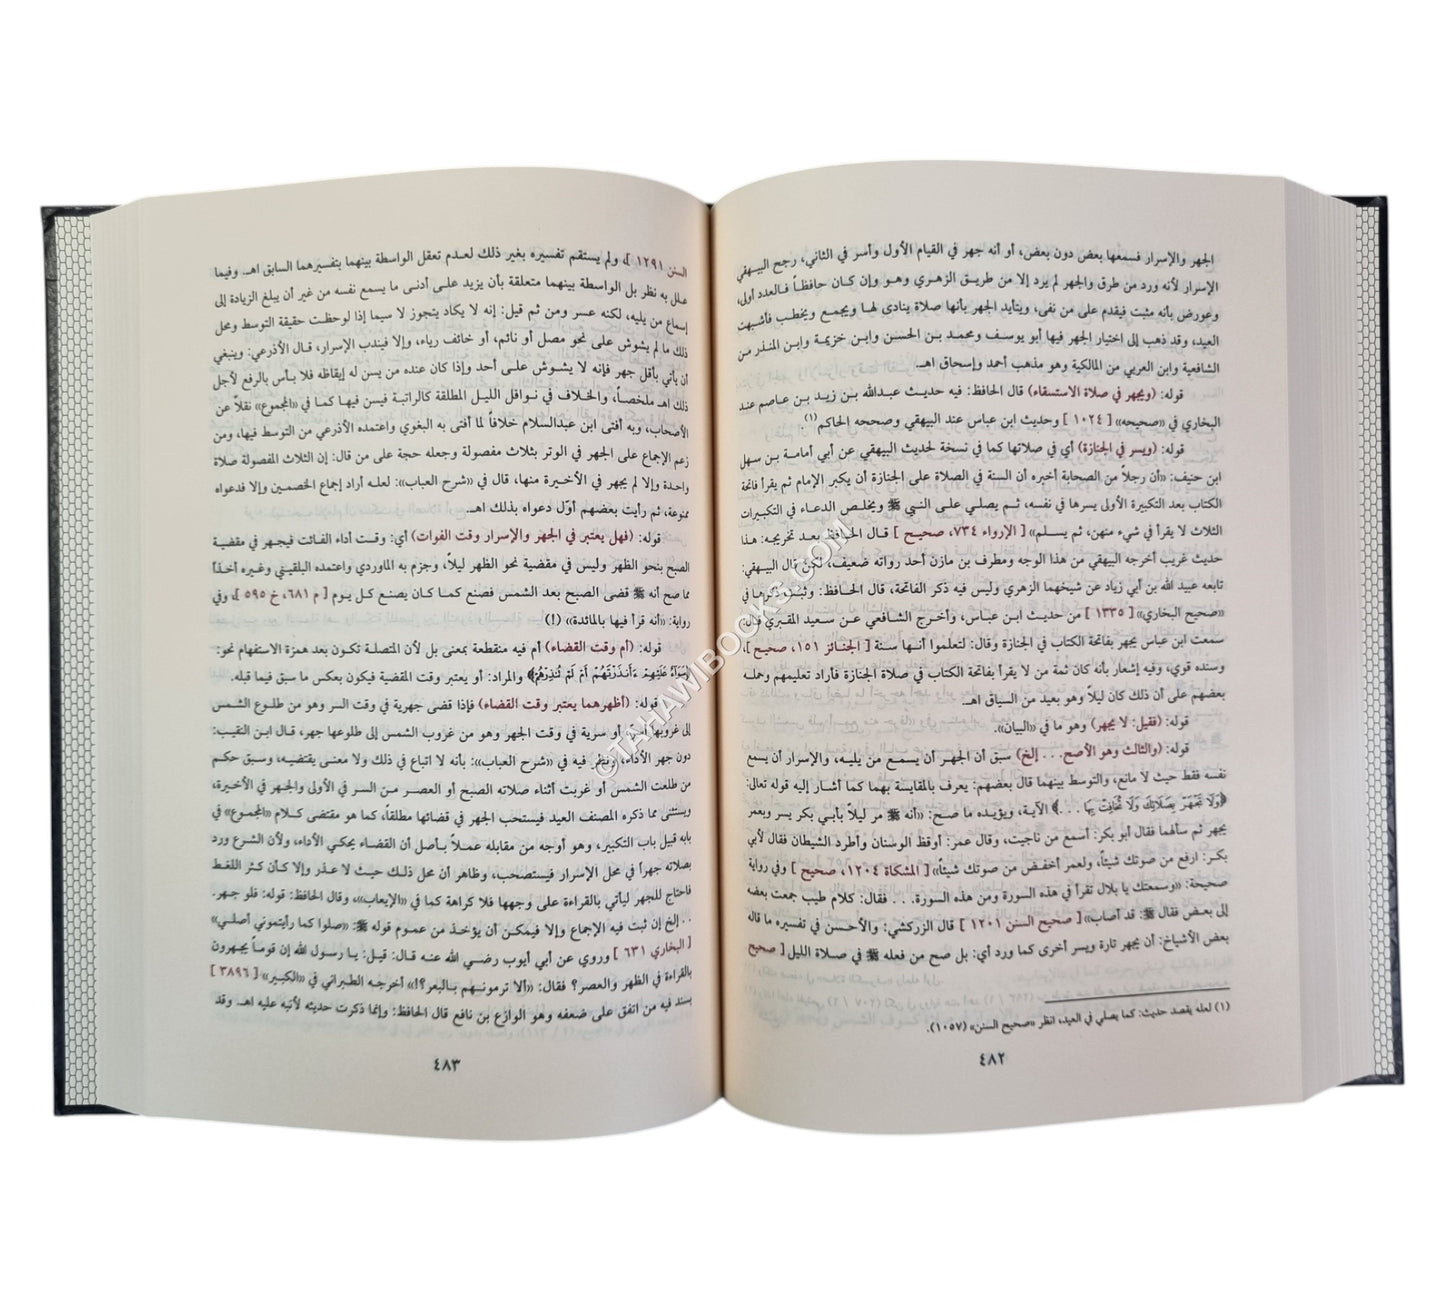 الجهر والإسرار فسمعها بعض دون بعض، أو أنه جهر في القيام الأول وأسر في الثاني، رجح البيهقي
الإسرار لأنه ورد من طرق والجهر لم يرد إلا من طريق الزهري وهو وإن كان حافظاً فالعدد أولى،
وعورض بأنه مثبت فيقدم على من نفى، ويتأيد الجهر بأنها صلاة ينادى لها ويجمع ويخطب فأشبهت
العيد، وقد ذهب إلى اختيار الجهر فيها أبو يوسف ومحمد بن الحسن وابن خزيمة وابن المنذر من
الشافعية وابن العربي من المالكية وهو مذهب أحمد وإسحاق اهـ.
قوله: (ويجهر في صلاة الاستسقاء) قال الحافظ: فيه حديث عبدالله بن زيد بن عاصم عند
البخاري في «صحيحه» [ ١٠٢٤ ] وحديث ابن عباس عند البيهقي وصححه الحاكم(١).
قوله: (ويسر في الجنازة) أي في صلاتها كما في نسخة لحديث البيهقي عن أبي أمامة بن سهل
ابن حنيف: «أن رجلاً من الصحابة أخبره أن السنة في الصلاة على الجنازة أن يكبر الإمام ثم يقرأ فاتحة
الكتاب بعد التكبيرة الأولى يسرها في نفسه، ثم يصلي على النبي ﷺ ويخلص الدعاء في التكبيرات
الثلاث لا يقرأ في شيء منهن، ثم يسلم» [ الإرواء ٧٣٤، صحيح ] قال الحافظ بعد تخريجه: هذا
حديث غريب أخرجه البيهقي من هذا الوجه ومطرف بن مازن أحد رواته ضعيف، لكن قال البيهقي:
تابعه عبيد الله بن أبي زياد عن شيخهما الزهري وليس فيه ذكر الفاتحة، قال الحافظ: وثبت ذكرها في
«صحيح البخاري» [ ١٣٣٥ ] من حديث ابن عباس، وأخرج الشافعي عن سعيد المقبري قال:
سمعت ابن عباس يجهر بفاتحة الكتاب في الجنازة وقال: لتعلموا أنها سنة [ الجنائز ١٥١، صحيح ]،
وسنده قوي، وفيه إشعار بأنه كان ثمة من لا يقرأ بفاتحة الكتاب في صلاة الجنازة فأراد تعليمهم وحمله
بعضهم على أن ذلك كان ليلاً وهو بعيد من السياق اهـ.
قوله: (فقيل: لا يجهر) وهو ما في «البيان».
قوله: (والثالث وهو الأصح . . . إلخ) سبق أن الجهر أن يسمع من يليه، والإسرار أن يسمع
نفسه فقط حيث لا مانع، والتوسط بينهما قال بعضهم: يعرف بالمقايسة بهما كما أشار إليه قوله تعالى:
﴿وَلَا تَجْهَرْ بِصَلَاتِكَ وَلَا تُخَافِتْ بِهَا . . .﴾ الآية، ويؤيده ما صح: «أنه ﷺ مر ليلاً بأبي بكر يسر وبعمر
يجهر ثم سألهما فقال أبو بكر: أسمع من ناجيت، وقال عمر: أوقظ الوسنان وأطرد الشيطان فقال لأبي
بكر: ارفع من صوتك شيئاً، ولعمر أخفض من صوتك شيئاً» [ المشكاة ١٢٠٤، صحيح ] وفي رواية
صحيحة: «وسمعتك يا بلال تقرأ في هذه السورة ومن هذه السورة. . . فقال: كلام طيب جمعت بعضه
إلى بعض فقال ﷺ: قد أصاب» [ صحيح السنن ١٢٠١ ] قال الزركشي: والأحسن في تفسيره ما قاله
بعض الأشياخ: أن يجهر تارة ويسر أخرى كما ورد أي: بل صح من فعله ﷺ في صلاة الليل [ صحيح
(١) لعله يقصد حديث: كما يصلي في العيد، انظر «صحيح السنن» (١٠٥٧).
٤٨٢
السنن ١٢٩١ ]، ولم يستقم تفسيره بغير ذلك لعدم تعقل الواسطة بينهما بتفسيرهما السابق اهـ. وفيما
علل به نظر بل الواسطة بينهما متعلقة بأن يزيد على أدنى ما يسمع نفسه من غير أن يبلغ الزيادة إلى
إسماع من يليه، لكنه عسر ومن ثم قيل: إنه لا يكاد يتجوز لا سيما إذا لوحظت حقيقة التوسط ومحل
ذلك ما لم يشوش على نحو مصل أو نائم، أو خائف رياء، وإلا فيندب الإسرار، قال الأذرعي: وينبغي
أن يأتي بأقل جهر فإنه لا يشوش على أحد وإذا كان عنده من يسن له إيقاظه فلا بأس بالرفع لأجل
ذلك اهـ ملخصاً، والخلاف في نوافل الليل المطلقة كالراتبة فيسن فيها كما في «المجموع» نقلاً عن
الأصحاب، وبه أفتى ابن عبدالسلام خلافاً لما أفتى به البغوي واعتمده الأذرعي من التوسط فيها، ومن
زعم الإجماع على الجهر في الوتر بثلاث مفصولة وجعله حجة على من قال: إن الثلاث المفصولة صلاة
واحدة وإلا لم يجهر في الأخيرة منها، قال في «شرح العباب»: لعله أراد إجماع الخصمين وإلا فدعواه
ممنوعة، ثم رأيت بعضهم أوّل دعواه بذلك اهـ.
قوله: (فهل يعتبر في الجهر والإسرار وقت الفوات) أي: وقت أداء الفائت فيجهر في مقضية
الصبح بنحو الظهر وليس في مقضية نحو الظهر ليلاً، وجزم به الماوردي واعتمده البلقيني وغيره أخذاً
مما صح أنه ﷺ قضى الصبح بعد الشمس فصنع كما كان يصنع كل يوم [ م ٦٨١، خ ٥٩٥ ]، وفي
رواية: «أنه قرأ فيها بالمائدة» (!)
قوله: (أم وقت القضاء) أم فيه منقطعة بمعنى بل لأن المتصلة تكون بعد همزة الاستفهام نحو:
﴿سَوَآءٌ عَلَيْهِمْ ءَأَنذَرْتَهُمْ أَمْ لَمْ تُنذِرْهُمْ﴾ والمراد: أو يعتبر وقت المقضية فيكون بعكس ما سبق فيما قبله.
قوله: (أظهرهما يعتبر وقت القضاء) فإذا قضى جهرية في وقت السر وهو من طلوع الشمس
إلى غروبها أسرّ أو سرية في وقت الجهر وهو من غروب الشمس إلى طلوعها جهر، قال ابن النقيب:
دون جهر الأداء، ونظر فيه في «شرح العباب»: بأنه لا اتباع في ذلك ولا معنى يقتضيه، وسبق حكم
من طلعت الشمس أو غربت أثناء صلاته الصبح أو العصر من السر في الأولى والجهر في الأخيرة،
ويستثنى مما ذكره المصنف العيد فيستحب الجهر في قضائها مطلقاً، كما هو مقتضى كلام «المجموع» في
بابه قبيل باب التكبير، وهو أوجه من مقابله عملاً بأصل أن القضاء يحكي الأداء، ولأن الشرع ورد
بصلاته جهراً في محل الإسرار فيستصحب، وظاهر أن محل ذلك حيث لا عذر وإلا كأن كثر اللغط
فاحتاج للجهر ليأتي بالقراءة على وجهها فلا كراهة كما في «الإيعاب»، وقال الحافظ: قوله: فلو جهر.
. . إلخ إن ثبت فيه الإجماع وإلا فيمكن أن يؤخذ من عموم قوله ﷺ: «صلوا كما رأيتموني أصلي»
[ البخاري ٦٣١ ] وروي عن أبي أيوب رضي الله عنه قال: قيل: يا رسول الله إن قوماً يجهرون
بالقراءة في الظهر والعصر؟ فقال: «ألا ترمونهم بالبعر؟!» أخرجه الطبراني في «الكبير» [ ٣٨٩٦ ]
بسند فيه من اتفق على ضعفه وهو الوازع بن نافع قال الحافظ: وإنما ذكرت حديثه لأنبه عليه اهـ. وقد
٤٨٣
©TAHAWIBOOKS.COM